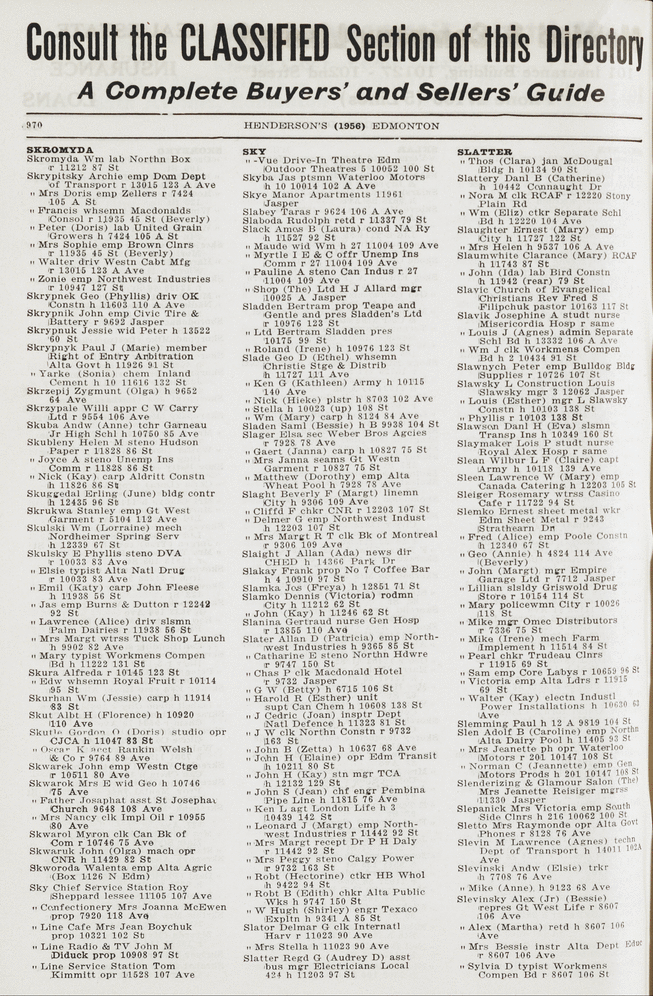 Consult the CLASSIFIED Section of this Directory
A Complete Buyers' and Sellers' Guide
970
HENDERSON'S (1956) EDMONTON
SKROMYDA
Skromyda Wm lab Northn Box
r 11212 87 St
Skrypitsky Archie emp Dom Dept
of Transport r 13015 123 A Ave
" Mrs Doris emp Zellers r 7424
105 A St
" Francis whsemn Macdonalds
Consol r 11935 45 St (Beverly)
" Peter (Doris) lab United Grain
Growers h 7424 105 A St
" Mrs Sophie emp Brown Clnrs
r 11935 45 St (Beverly)
" Walter driv Westn Cabt Mfg
r 13015 123 A Ave
" Zonie emp Northwest Industries
r 10947 127 St
Skrypnek Geo (Phyllis) driv OK
Constn h 11603 110 A Ave
Skrypnik John emp Civic Tire &
Battery r 9692 Jasper
Skrypnuk Jessie wid Peter h 13522
60 St
Skrypnyk Paul J (Marie) member
Right of Entry Arbitration
Alta Govt h 11926 91 St
" Yarke (Sonia) chem Inland
Cement h 10 11616 132 St
Skrzepij Zygmunt (Olga) h 9652
64 Ave
Skrzypale Willi appr C W Carry
Ltd r 9554 106 Ave
Skuba Andw (Anne) tchr Garneau
Jr High Schl h 10750 85 Ave
Skubleny Helen M steno Hudson
Paper r 11828 86 St
" Joyce A steno Unemp Ins
Comm r 11828 86 St
" Nick (Kay) carp Aldritt Constn
h 11826 86 St
Skuggedal Erling (June) bldg contr
h 12435 96 St
Skrukwa Stanley emp Gt West
Garment r 5104 112 Ave
Skulski Wm (Lorraine) mech
Nordheimer Spring Serv
h 12339 67 St
Skulsky E Phyllis steno DVA
r 10033 83 Ave
" Elsie typist Alta Natl Drug
r 10033 83 Ave
" Emil (Katy) carp John Fleese
h 11938 56 St
" Jas emp Burns & Dutton r 12242
92 St
" Lawrence (Alice) driv slsmn
Palm Dairies r 11938 56 St
" Mrs Margt wtrss Tuck Shop Lunch
h 9902 82 Ave
" Mary typist Workmens Compen
Bd h 11222 131 St
Skura Alfreda r 10145 123 St
" Edw whsemn Royal Fruit r 10114
95 St
Skurhan Wm (Jessie) carp h 11914
83 St
Skut Albt H (Florence) h 10920
110 Ave
Skutle Gordon O (Doris) studio opr
CJCA h 11047 83 St
" Oscar K acct Rankin Welsh
& Co r 9764 89 Ave
Skwarek John emp Westn Ctge
r 10511 80 Ave
Skwarok Mrs E wid Geo h 10746
75 Ave
" Father Josaphat asst St Josephat
Church 9648 108 Ave
" Mrs Nancy clk Impl Oil r 10955
80 Ave
Skwarol Myron clk Can Bk of
Com r 10746 75 Ave
Skwaruk John (Olga) mach opr
CNR h 11429 82 St
Skworoda Walenta emp Alta Agric
(Box 1126 N Edm)
Sky Chief Service Station Roy
Sheppard lessee 11105 107 Ave
" Confectionery Mrs Joanna McEwen
prop 7920 118 Ave
" Line Cafe Mrs Jean Boychuk
prop 10321 102 St
" Line Radio & TV John M
Diduck prop 10908 97 St
" Line Service Station Tom
Kimmitt opr 11528 107 Ave
SKY
" -Vue Drive-In Theatre Edm
Outdoor Theatres 5 10052 100 St
Skyba Jas ptsmn Waterloo Motors
h 10 10014 102 A Ave
Skye Manor Apartments 11961
Jasper
Slabey Taras r 9624 106 A Ave
Slaboda Rudolph retd r 11337 79 St
Slack Amos B (Laura) cond NA Ry
h 11527 92 St
" Maude wid Wm h 27 11004 109 Ave
" Myrtle I E & C offr Unemp Ins
Comm r 27 11004 109 Ave
" Pauline A steno Can Indus r 27
11004 109 Ave
" Shop (The) Ltd H J Allard mgr
10025 A Jasper
Sladden Bertram prop Teape and
Gentle and pres Sladden's Ltd
r 10976 123 St
" Ltd Bertram Sladden pres
10175 99 St
" Roland (Irene) h 10976 123 St
Slade Geo D (Ethel) whsemn
Christie Stge & Distrib
h 11727 111 Ave
" Ken G (Kathleen) Army h 10115
140 Ave
" Nick (Hieke) plstr h 8703 102 Ave
" Stella h 10023 (up) 108 St
" Wm (Mary) carp h 8124 84 Ave
Sladen Saml (Bessie) h B 9938 104 St
Slager Elsa sec Weber Bros Agcies
r 7928 78 Ave
" Gaert (Janna) carp h 10827 75 St
" Mrs Janna seams Gt Westn
Garment r 10827 75 St
" Matthew (Dorothy) emp Alta
Wheat Pool h 7928 78 Ave
Slaght Beverly F (Margt) linemn
City h 9306 109 Ave
" Cliffd F chkr CNR r 12203 107 St
" Delmer G emp Northwest Indust
h 12203 107 St
" Mrs Margt R T clk Bk of Montreal
r 9306 109 Ave
Slaight J Allan (Ada) news dir
CHED h 14366 Park Dr
Slakay Frank prop No 7 Coffee Bar
h 4 10910 97 St
Slamka Jos (Freya) h 12851 71 St
Slamko Dennis (Victoria) rodmn
City h 11212 62 St
" John (Kay) h 11246 62 St
Slanina Gertraud nurse Gen Hosp
r 13855 110 Ave
Slater Allan D (Patricia) emp North-
west Industries h 9365 85 St
" Catharine E steno Northn Hdwre
r 9747 150 St
" Chas P clk Macdonald Hotel
r 9732 Jasper
" G W (Betty) h 6715 106 St
" Harold R (Esther) unit
supt Can Chem h 10608 138 St
" J Cedric (Joan) insptr Dept
Natl Defence h 11323 81 St
" J W clk Northn Constn r 9732
163 St
" John B (Zetta) h 10637 68 Ave
" John H (Elaine) opr Edm Transit
h 10211 80 St
" John H (Kay) stn mgr TCA
h 12132 129 St
" John S (Jean) chf engr Pembina
Pipe Line h 11815 76 Ave
" Ken L agt London Life h 3
10439 142 St
" Leonard J (Margt) emp North-
west Industries r 11442 92 St
" Mrs Margt recept Dr P H Daly
r 11442 92 St
" Mrs Peggy steno Calgy Power
r 9732 163 St
" Robt (Hectorine) ctkr HB Whol
h 9422 94 St
" Robt B (Edith) chkr Alta Public
Wks h 9747 150 St
" W Hugh (Shirley) engr Texaco
Expltn h 9341 A 85 St
Slator Delmar G clk Internatl
Harv r 11023 90 Ave
" Mrs Stella h 11023 90 Ave
Slatter Regd G (Audrey D) asst
bus mgr Electricians Local
424 h 11203 97 St
SLATTER
" Thos (Clara) jan McDougal
Bldg h 10134 90 St
Slattery Danl B (Catherine)
h 10442 Connaught Dr
" Nora M clk RCAF r 12220 Stony
Plain Rd
" Wm (Eliz) ctkr Separate Schl
Bd h 12220 104 Ave
Slaughter Ernest (Mary) emp
City h 11727 122 St
" Mrs Helen h 9537 106 A Ave
Slaunwhite Clarance (Mary) RCAF
h 11743 87 St
" John (Ida) lab Bird Constn
h 11942 (rear) 79 St
Slavic Church of Evangelical
Christians Rev Fred S
Filipchuk pastor 10163 117 St
Slavik Josephine A studt nurse
Misericordia Hosp r same
" Louis J (Agnes) admin Separate
Schl Bd h 13332 106 A Ave
" Wm J clk Workmens Compen
Bd h 2 10434 91 St
Slawnych Peter emp Bulldog Bldg
Supplies r 10726 107 St
Slawsky L Construction Louis
Slawsky mgr 3 12062 Jasper
" Louis (Esther) mgr L Slawsky
Constn h 10103 138 St
" Phyllis r 10103 138 St
Slawson Danl H (Eva) slsmn
Transp Ins h 10349 160 St
Slaymaker Lois P studt nurse
Royal Alex Hosp r same
Slean Wilbur L F (Claire) capt
Army h 10118 139 Ave
Sleen Lawrence W (Mary) emp
Canada Catering h 12203 105 St
Sleiger Rosemary wtrss Casino
Cafe r 11722 94 St
Slemko Ernest sheet metal wkr
Edm Sheet Metal r 9243
Strathearn Dr
" Fred (Alice) emp Poole Constn
h 12340 67 St
" Geo (Annie) h 4824 114 Ave
(Beverly)
" John (Margt) mgr Empire
Garage Ltd r 7712 Jasper
" Lillian slsldy Griswold Drug
Store r 10154 114 St
" Mary policewmn City r 10026
118 St
" Mike mgr Omec Distributors
r 7336 75 St
" Mike (Irene) mech Farm
Implement h 11514 84 St
" Pearl chkr Trudeau Clnrs
r 11915 69 St
" Sam emp Core Labys r 10659 96 St
" Victoria emp Alta Ldrs r 11915
69 St
" Walter (Kay) electn Industl
Power Installations h 10630 63
Ave
Slemming Paul h 12 A 9819 104 St
Slen Adolf B (Caroline) emp Northn
Alta Dairy Pool h 11405 93 St
" Mrs Jeanette ph opr Waterloo
Motors r 201 10147 108 St
" Norman C (Jeannette) emp Gen
Motors Prods h 201 10147 108 St
Slenderizing & Glamour Salon (The)
Mrs Jeanette Reisiger mgrss
11330 Jasper
Slepanick Mrs Victoria emp South
Side Clnrs h 216 10062 100 St
Sletto Mrs Raymonde opr Alta Govt
Phones r 8128 76 Ave
Slevin M Lawrence (Agnes) techn
Dept of Transport h 14011 102A
Ave
Slevinski Andw (Elsie) trkr
h 7708 76 Ave
" Mike (Anne) h 9123 68 Ave
Slevinsky Alex (Jr) (Bessie)
repres Gt West Life r 8607
106 Ave
" Alex (Martha) retd h 8607 106
Ave
" Mrs Bessie instr Alta Dept Educ
r 8607 106 Ave
" Sylvia D typist Workmens
Compen Bd r 8607 106 St